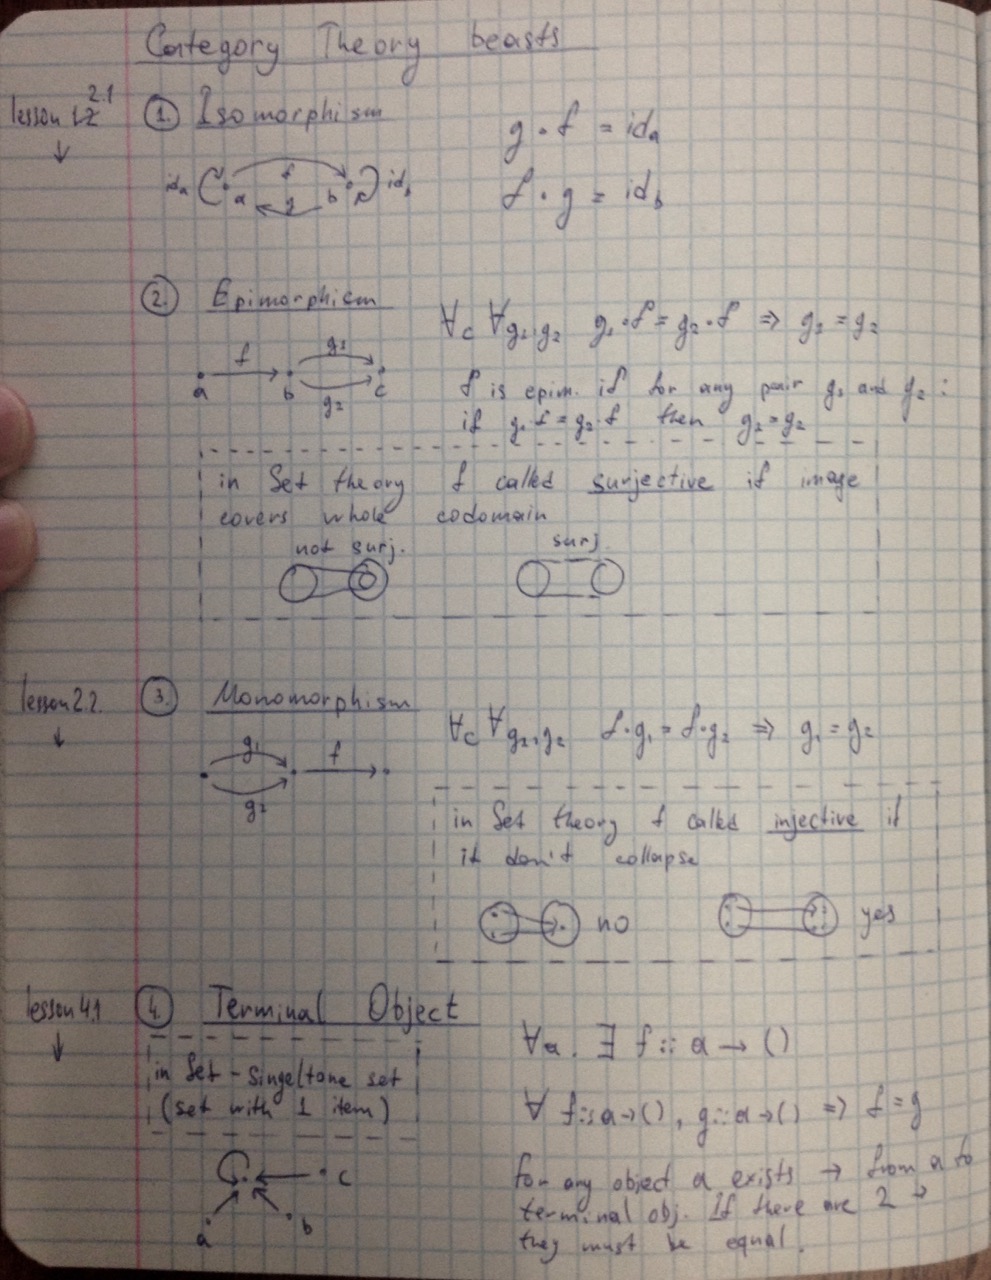 Category Theory beasts
lesson 2.1
↓
1. Isomorphism
g · f = id_a
f · g = id_b
id_a a f g b id_b
2. Epimorphism
∀c ∀g₁,g₂ g₁·f = g₂·f ⇒ g₁ = g₂
a f b g₁ g₂ c
f is epim. if for any pair g₁ and g₂ :
if g₁·f = g₂·f then g₁ = g₂
in Set theory f called surjective if image
covers whole codomain
not surj. surj.
lesson 2.2.
↓
3. Monomorphism
∀c ∀g₁,g₂ f·g₁ = f·g₂ ⇒ g₁ = g₂
g₁ g₂ f
in Set theory f called injective if
it don't collapse
no yes
lesson 4.1
↓
4. Terminal Object
∀a. ∃ f :: a → ()
in Set - Singeltone set
(set with 1 item)
∀ f :: a → (), g :: a → () ⇒ f = g
a b c
for any object a exists → from a to
terminal obj. If there are 2 →
they must be equal.